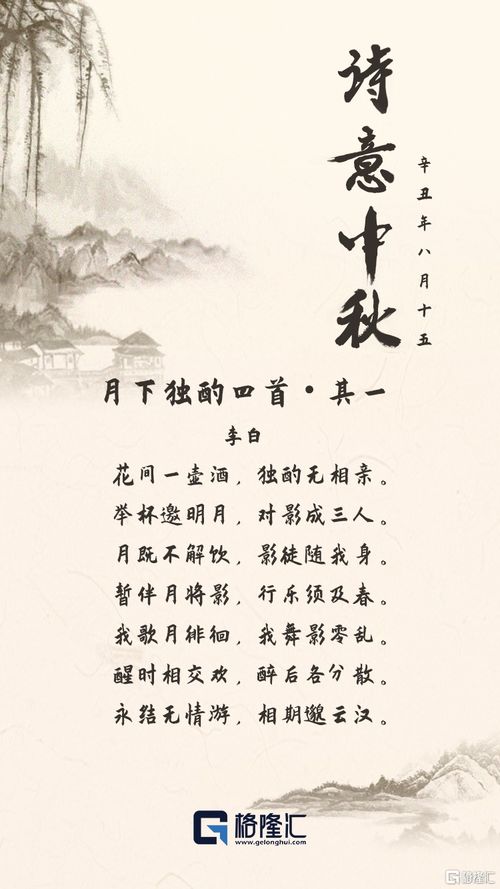 诗意中秋
辛丑年八月十五
月下独酌四首·其一
李白
花间一壶酒，独酌无相亲。
举杯邀明月，对影成三人。
月既不解饮，影徒随我身。
暂伴月将影，行乐须及春。
我歌月徘徊，我舞影零乱。
醒时相交欢，醉后各分散。
永结无情游，相期邈云汉。
格隆汇
www.gelonghui.com
格隆汇